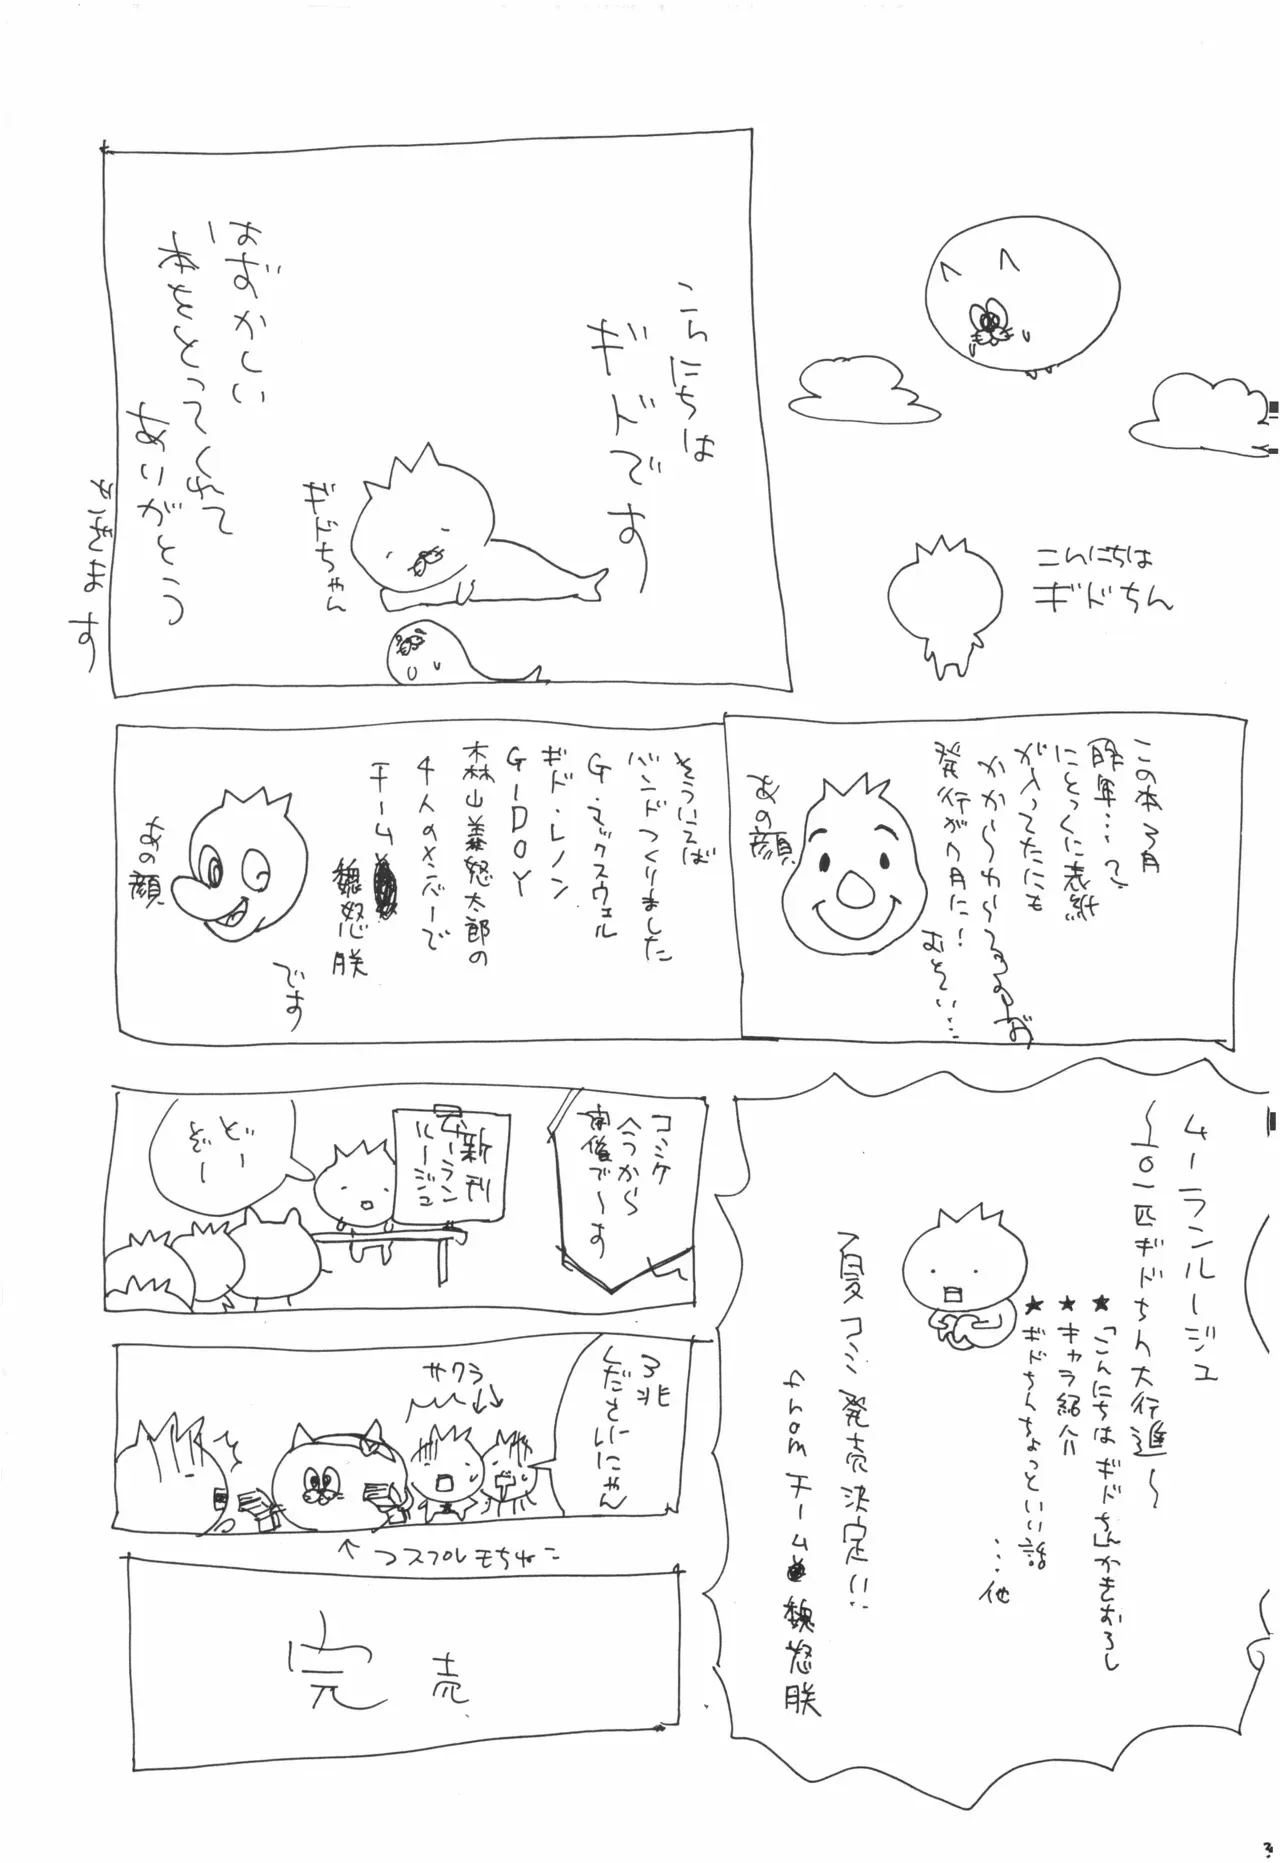 こんにちは
ギドちん
こんにちは
ギドです
ギドちゃん
はずかしい
本をとってくれて
ありがとう
ございます
この本3月
昨年…って
にとっくに表紙
が入ってたにも
かかわらずなのだ
発行が7月に!
むごい…
あの顔
そういえば
バンドつくりました
G・マックスウェル
ギド・レノン
G-DOY
森山義怒太郎の
4人のメンバーで
チーム
魏怒朕
です
あの顔
ムーランルージュ
〜101匹ギドちん大行進〜
★「こんにちはギドちん」かきおろし
★キャラ紹介
★ギドちんちょっといい話
…他
夏コミ発売決定!!
from チーム魏怒朕
コミケ
今から
開催で〜す
新刊
ムーラン
ルージュ
どー
ぞー
3兆
くださいにゃん
サクラ
↑コスプレもちねこ
完売